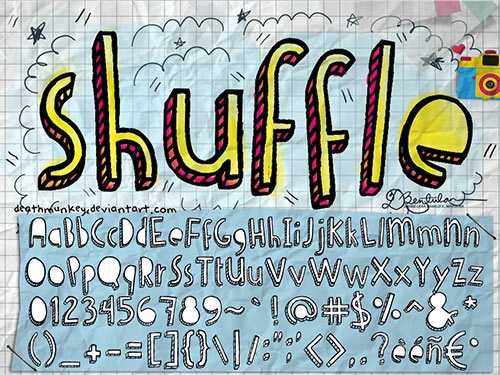 shuffle
deathmunkey.deviantart.com
AaBbCcDdEeFfGgHhIiJjKkLlMmNn
OoPpQqRrSsTtUuVvWwXxYyZz
0123456789~`!@#$%^&*
()_+-=[]{}\|/:;"'<>,.?èéñ€